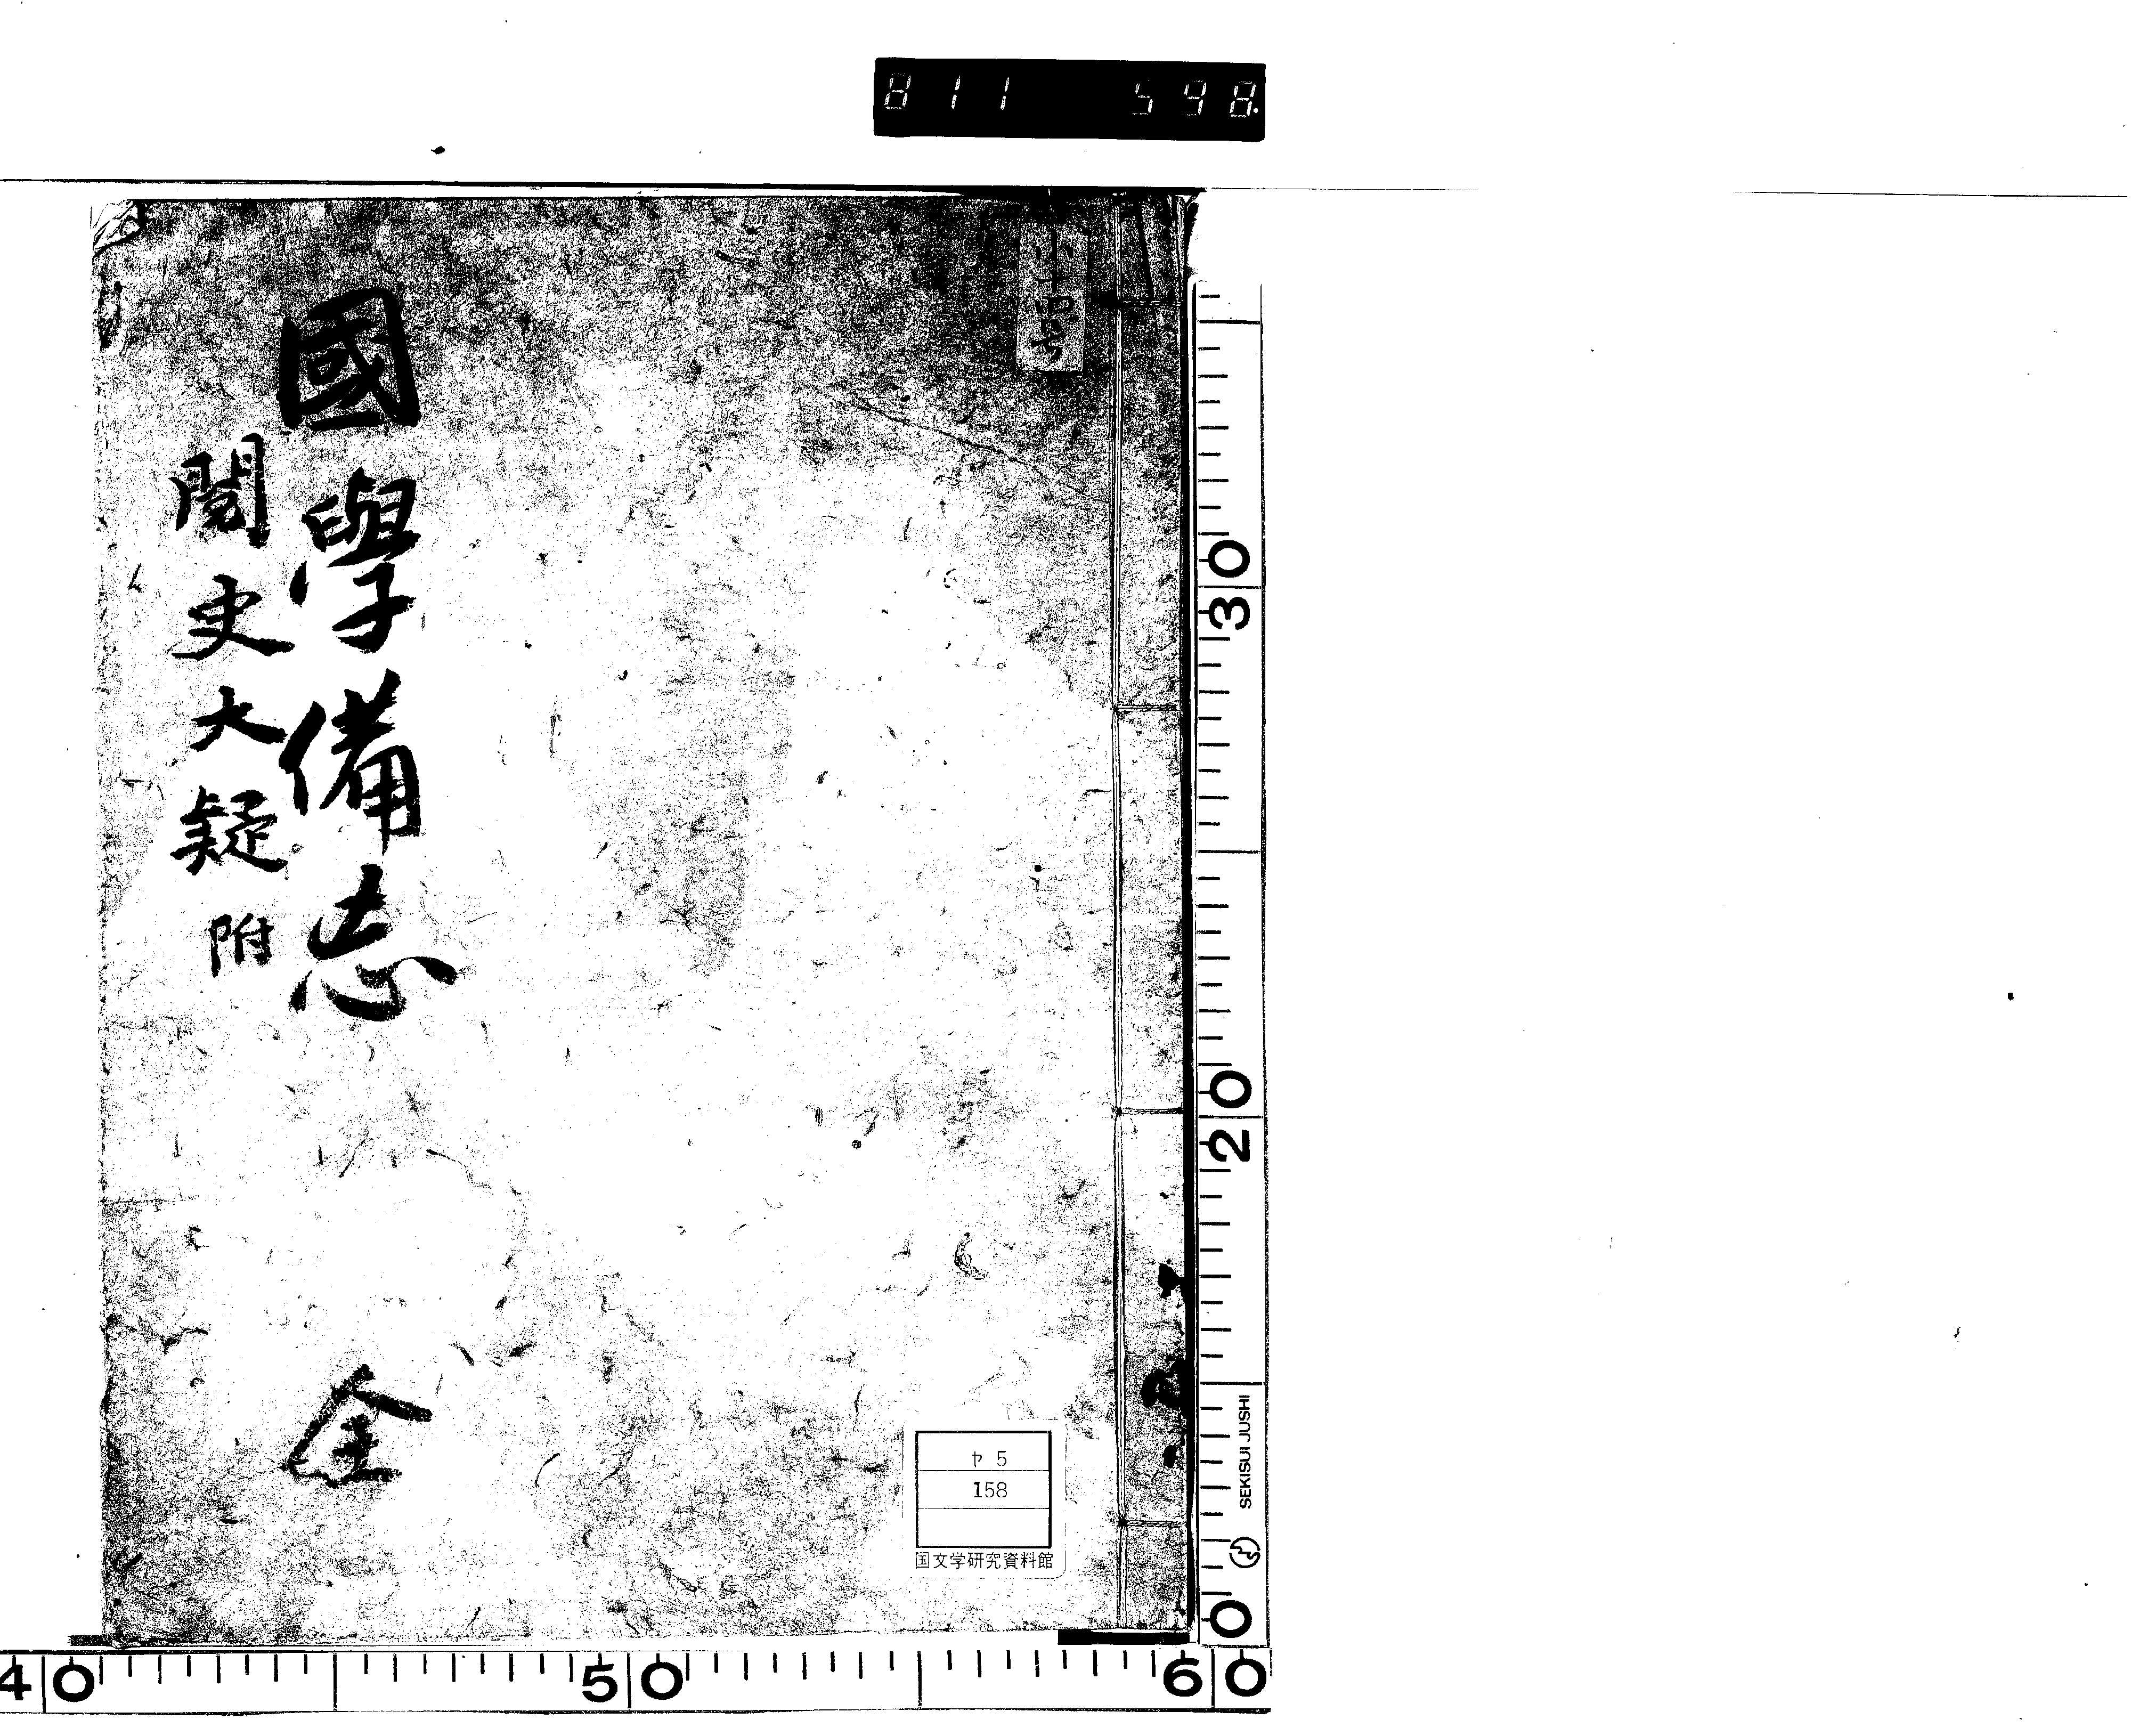 811 598.
小十四号
國學備志 全
閲史大疑附
ヤ5
158
国文学研究資料館
30
20
0
SEKISUI JUSHI
40 50 60